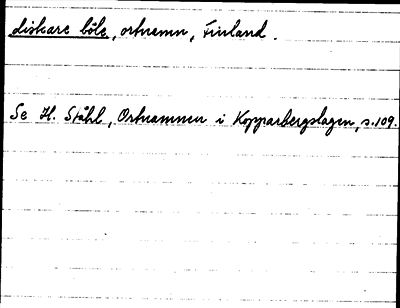 diskare böle, ortnamn, Finland.
Se H. Ståhl, Ortnamnen i Kopparbergslagen, s.109.